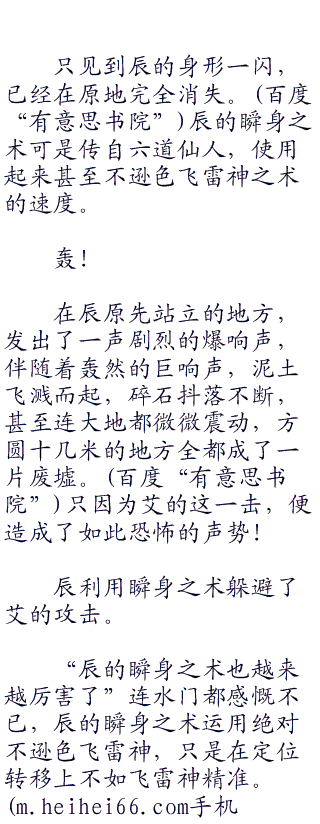 只见到辰的身形一闪，
已经在原地完全消失。(百度
“有意思书院”)辰的瞬身之
术可是传自六道仙人，使用
起来甚至不逊色飞雷神之术
的速度。
轰！
在辰原先站立的地方，
发出了一声剧烈的爆响声，
伴随着轰然的巨响声，泥土
飞溅而起，碎石抖落不断，
甚至连大地都微微震动，方
圆十几米的地方全都成了一
片废墟。(百度“有意思书
院”)只因为艾的这一击，便
造成了如此恐怖的声势！
辰利用瞬身之术躲避了
艾的攻击。
“辰的瞬身之术也越来
越厉害了”连水门都感慨不
已，辰的瞬身之术运用绝对
不逊色飞雷神，只是在定位
转移上不如飞雷神精准。
(m.heihei66.com手机